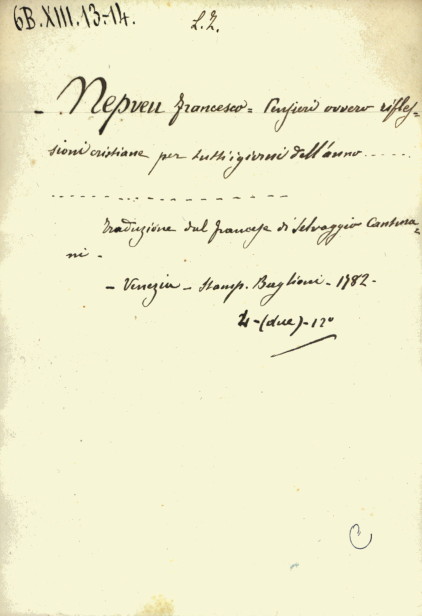 6B.XIII.13-14.
L.I.
- Nepveu Francesco = Pensieri ovvero rifles=
sioni cristiane per tutti i giorni dell'anno .....
- - - - - - - - - - - - - - -
Traduzione dal francese di Selvaggio Cantura=
ni -
- Venezia - Stamp. Baglioni - 1782 -
(due) - 12º